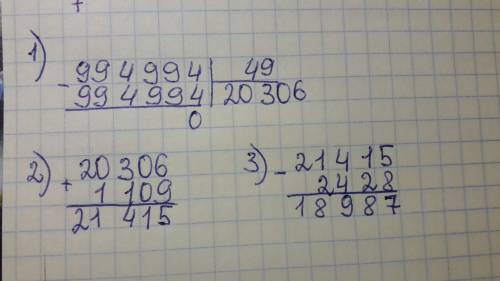 1)
994994 49
- 994994 20306
0
2) 20306
+ 1109
21415
3) - 21415
2428
18987